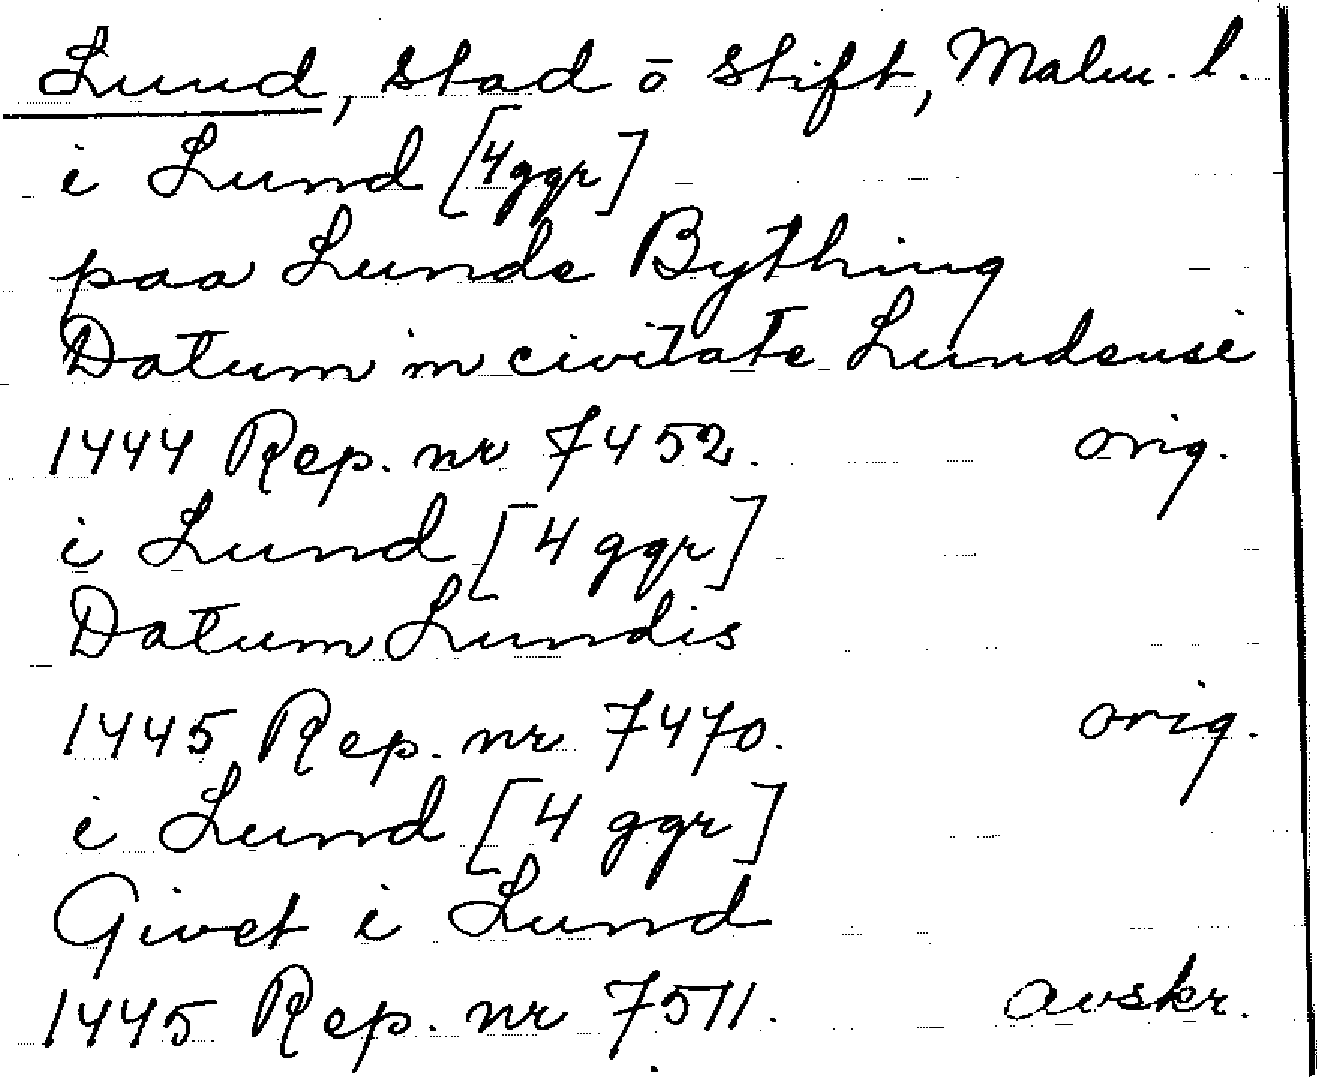 Lund, stad o stift, Malm. l.
i Lund [4 ggr]
paa Lunde Bything
Datum in civitate Lundensi
1444 Rep. nr 7452. orig.
i Lund [4 ggr]
Datum Lundis
1445 Rep. nr 7470. orig.
i Lund [4 ggr]
Givet i Lund
1445 Rep. nr 7511. avskr.